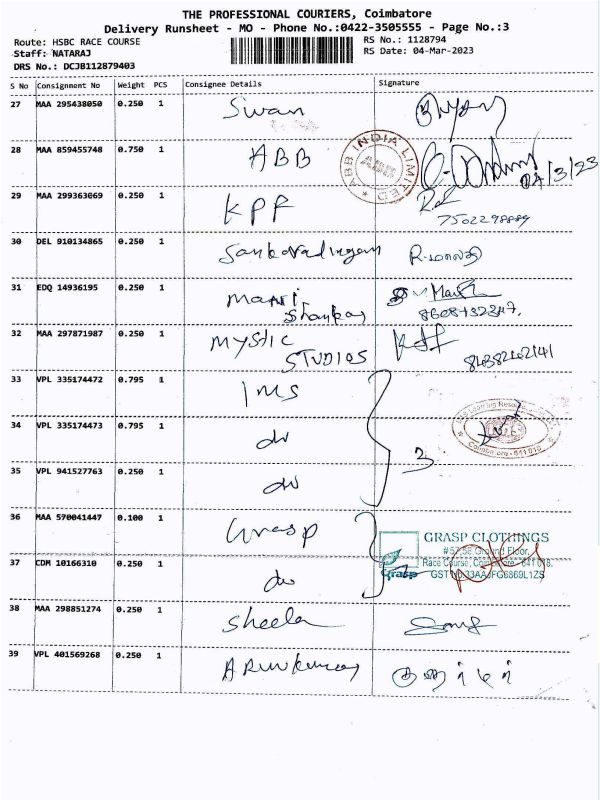 THE PROFESSIONAL COURIERS, Coimbatore
Delivery Runsheet - MO - Phone No.:0422-3505555 - Page No.:3
Route: HSBC RACE COURSE
RS No.: 1128794
Staff: NATARAJ
RS Date: 04-Mar-2023
DRS No.: DCJB112879403
S No Consignment No Weight PCS Consignee Details Signature
27 MAA 295438050 0.250 1 Swan
28 MAA 859455748 0.750 1 ABB
ABB INDIA LIMITED
04/3/23
29 MAA 299363069 0.250 1 KPF
7502298889
30 DEL 910134865 0.250 1
31 EDQ 14936195 0.250 1 Maari
Shankar
32 MAA 297871987 0.250 1 MYSTIC
STUDIOS
33 VPL 335174472 0.795 1 IMS
34 VPL 335174473 0.795 1 do
3
35 VPL 941527763 0.250 1 do
Coimbatore - 641 018
36 MAA 570041447 0.100 1 Grasp
GRASP CLOTHINGS
#57,58 Ground Floor,
Race Course, Coimbatore - 641 018.
Grasp
37 CDM 10166310 0.250 1 do
38 MAA 298851274 0.250 1 Sheela
39 VPL 401569268 0.250 1 Arunkumar